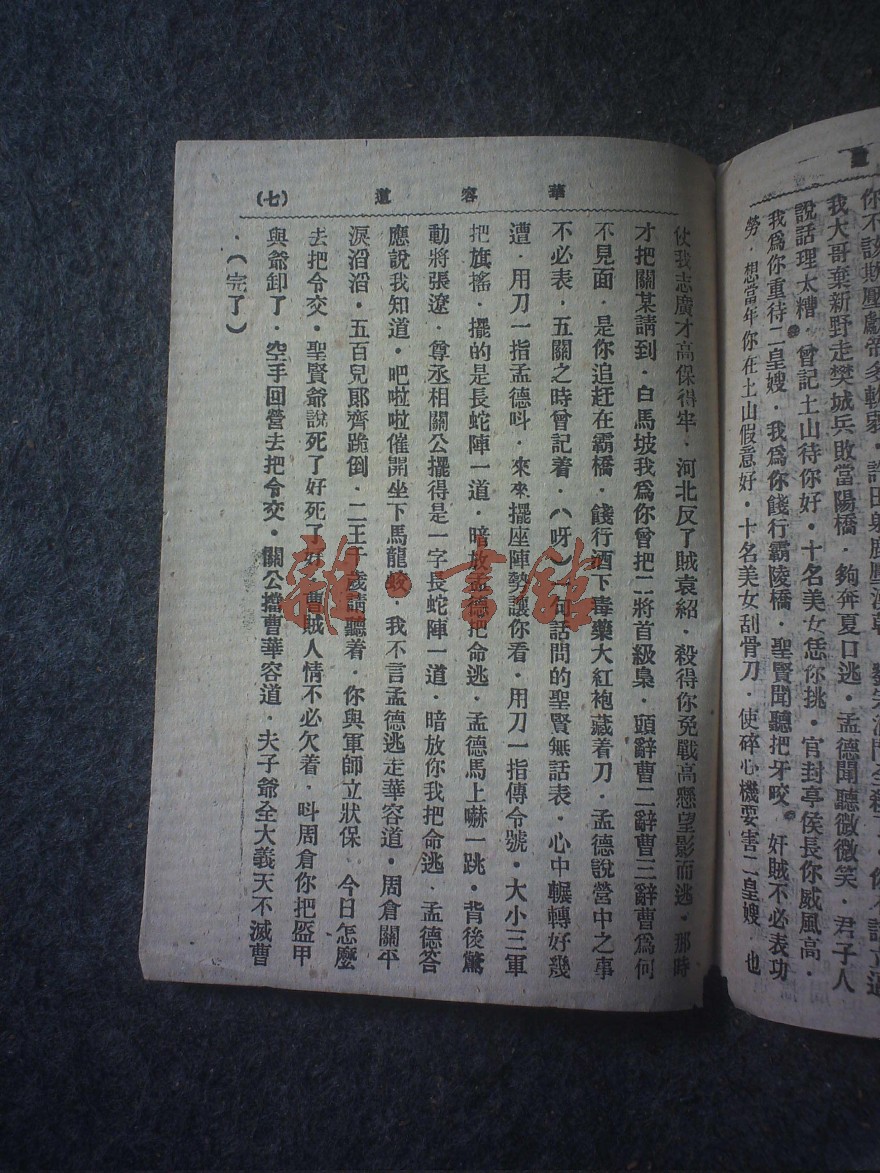 你不該欺壓獻帝多軟弱．許田射鹿壓漢朝．
我大哥棄新野走樊城兵敗當陽橋．夠奔夏口逃．孟德聞聽微微笑．君子人
說話理太糟．曾記土山待你好．十名美女恁你挑．官封亭侯長你威風高．
我爲你重待二皇嫂．我爲你餞行霸陵橋．聖賢聞聽把牙咬．奸賊不必表功
勞．想當年你在土山假意好．十名美女刮骨刀．使碎心機要害二皇嫂．也
華容道
(七)
仗我志廣才高保得牢．河北反了賊袁紹．殺得你免戰高懸望影而逃．那時
才把關某請到．白馬坡我爲你曾把二將首級梟．頭辭曹二辭曹三辭曹爲何
不見面．是你追赶在霸橋．餞行酒下毒藥大紅袍藏着刀．孟德說營中之事
不必表．五關之時曾記着．(呀)一句話問的聖賢無話表．心中輾轉好幾
遭．用刀一指孟德呌．來來擺座陣勢讓你看．用刀一指傳令號．大小三軍
把旗搖．擺的是長蛇陣一道．暗放孟德把命逃．孟德馬上嚇一跳．背後驚
動將張遼．尊丞相關公擺得是一字長蛇陣一道．暗放你我把命逃．孟德答
應說我知道．吧啦啦催開坐下馬龍蛟．我不言孟德逃走華容道．周倉關平
淚滔滔．五百兒郎齊跪倒．二王千歲請聽着．你與軍師立狀保．今日怎麼
去把令交．聖賢爺說死了好死了好．曹賊人情不必欠着．呌周倉你把盔甲
與爺卸了．空手回營去把令交．關公擋曹華容道．夫子爺全大義天不滅曹
．(完了)
雜·書館